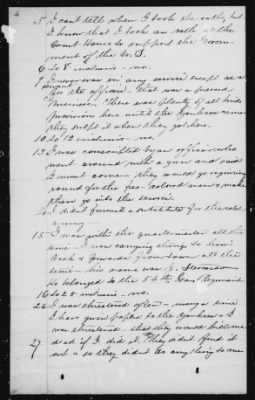 5 I can't tell when I took the oath, but
I know that I took an oath at the
Court House to support the Govern-
ment of the U.S.
6 to 8 inclusive - no.
9 I never was in any service except as a
servant for the officers. That was a forced
business. There was plenty of all kinds
here until the Yankees came
they swept it when they got here.
10 to 12 inclusive - no.
13 I was conscripted by an officer who
went around with a gun and said
I must come - they would go inquiring
round for the free colored men & make
them go into the service.
14 I didn't furnish a substitute for the rebel
army -
15 I was with the quartermaster all the
time - I was carrying things to him
back & forwards from town all the
time - his name was J. Stevenson
He belonged to the 5th Ga. Regiment
16 to 25 inclusive - no.
26 I was threatened often - many a time
I have given papers to the Yankees & I
was threatened - that they would kill me
dead if I did it. They didn't find it
27 out & so they didn't do any thing to me